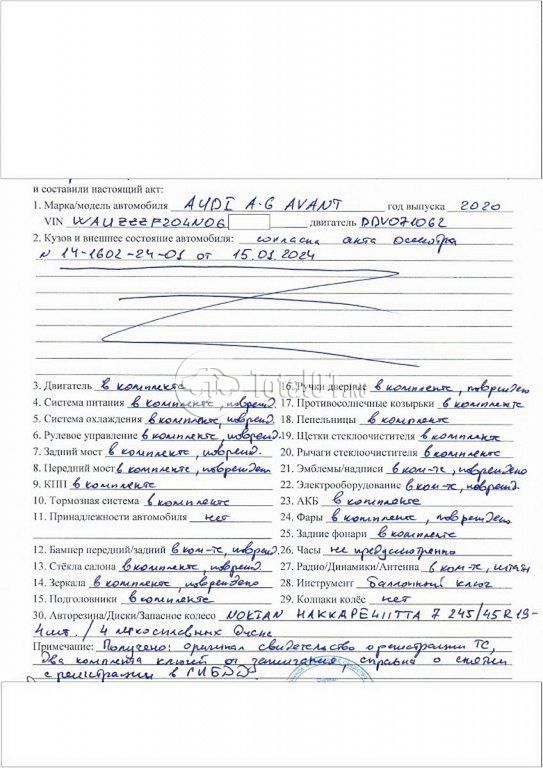 и составили настоящий акт:
1. Марка/модель автомобиля AUDI A-6 AVANT год выпуска 2020
VIN WAUZZZF204N06 двигатель DDV071062
2. Кузов и внешнее состояние автомобиля: согласна акта осмотра
N 14-1602-24-01 от 15.01.2024
3. Двигатель в комплекте 16. Ручки дверные в комплекте, повреждено
4. Система питания в комплекте, поврежд. 17. Противосолнечные козырьки в комплекте
5. Система охлаждения в комплекте, поврежд. 18. Пепельницы в комплекте
6. Рулевое управление в комплекте, поврежд. 19. Щетки стеклоочистителя в комплекте
7. Задний мост в комплекте, поврежд. 20. Рычаги стеклоочистителя в комплекте
8. Передний мост в комплекте, поврежден 21. Эмблемы/надписи в ком-те, повреждено
9. КПП в комплекте 22. Электрооборудование в ком-те, поврежд.
10. Тормозная система в комплекте 23. АКБ в комплекте
11. Принадлежности автомобиля нет 24. Фары в комплекте, повреждено
25. Задние фонари в комплекте
12. Бампер передний/задний в ком-те, поврежд. 26. Часы не предусмотренно
13. Стёкла салона в комплекте, поврежд. 27. Радио/Динамики/Антенна в ком-те, штатн
14. Зеркала в комплекте, повреждено 28. Инструмент Баллонный ключ
15. Подголовники в комплекте 29. Колпаки колёс нет
30. Авторезина/Диски/Запасное колесо NOKIAN HAKKAPELIITTA 7 245/45 R19-
4шт. / 4 легкосплавных диска
Примечание: Получено: оригинал свидетельство о регистрации ТС,
два комплекта ключей от зажигания, справка о снятии
с регистрации в ГИБДД
Total01.ru